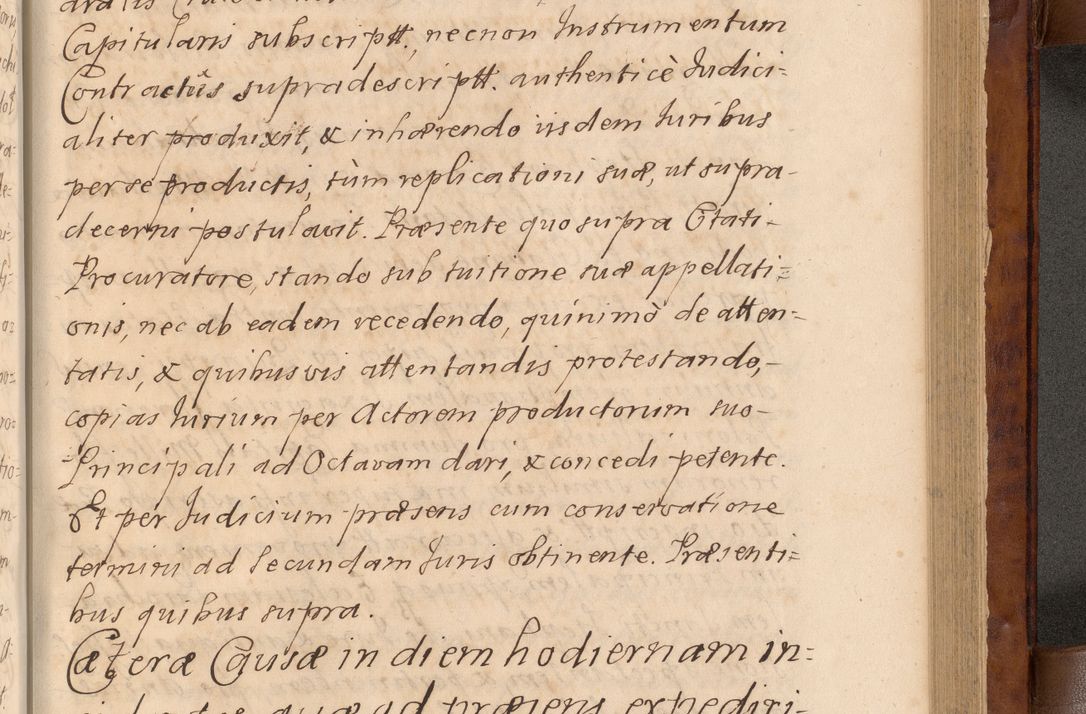 Capitularis subscriptt. necnon Instrumentum
Contractûs supradescriptt. authenticè Judici=
aliter produxit, & inhærendo iisdem Juribus
per se productis, tùm replicationi suæ, ut supra-
decerni postulavit. Præsente quo supra Citati-
Procuratore, stando sub tuitione suæ appellati=
onis, nec ab eadem recedendo, quinimò de atten=
tatis, & quibusvis attentandis protestando,-
copias Jurium per Actorem productorum suo-
Principali ad Octavam dari, & concedi petente.
Et per Judicium præsens cum conservatione
termini ad Secundam Juris obtinente. Præsenti=
bus quibus supra.
Cæteræ Causæ in diem hodiernam in=
ad præsens expediri-